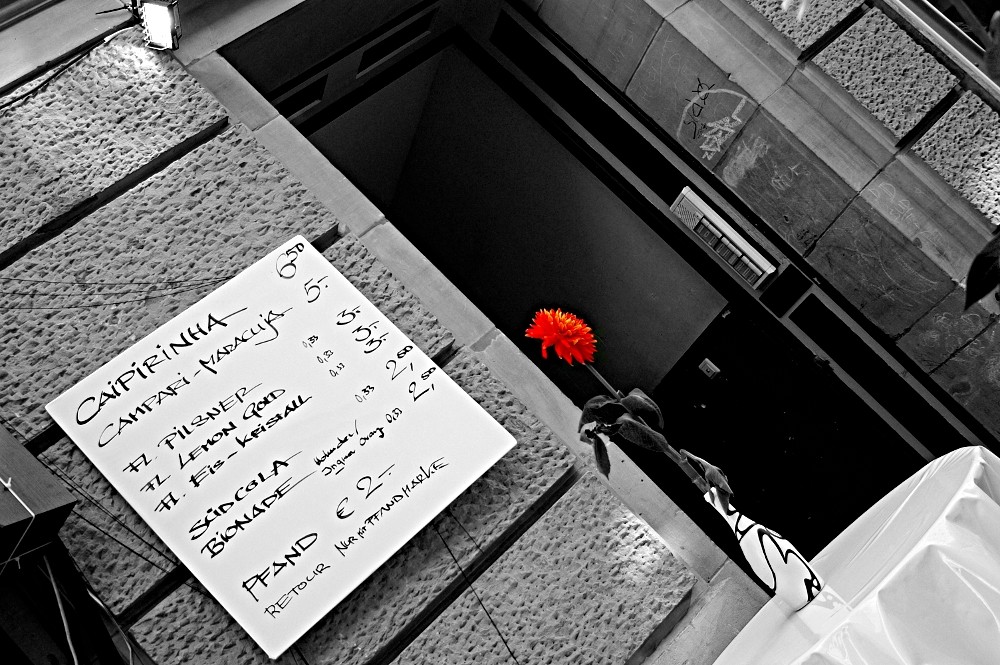 CAIPIRINHA 6,50
CAMPARI-MARACUJA 5,-
FL. PILSNER 0,33 3,-
FL LEMON GOLD 0,33 3,-
FL. EIS-KRISTALL 3,-
SÜDCOLA 0,33 2,50
BIONADE Holunder/ Ingwer Orang 0,33 2,50
PFAND € 2,-
RETOUR NUR MIT PFANDMARKE